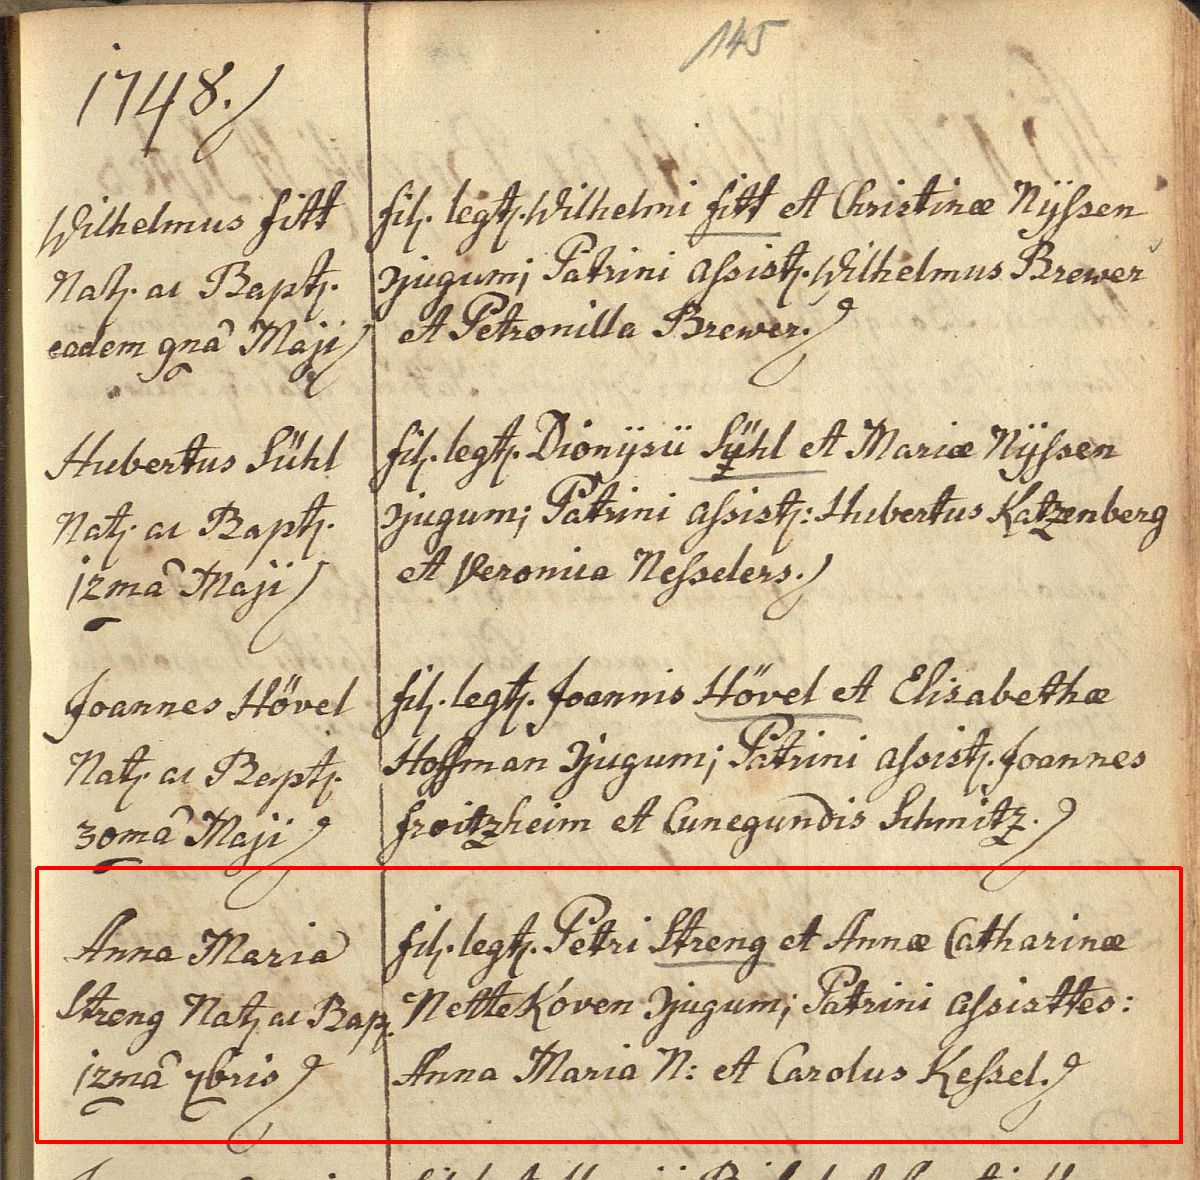 145
1748.)
Wilhelmus fitt
Natq. ac Baptq.
eadem 9nâ Maji)
filq. legtq. Wilhelmi fitt et Christinæ Nÿssen
Jjugum; Patrini assistq. Wilhelmus Brewer
et Petronilla Brewer.)
Hubertus Sühl
Natq. ac Baptq.
12mâ Maji)
filq. legtq. Dionÿsii Sÿhl et Mariæ Nÿssen
Jjugum; Patrini assistq: Hubertus Katzenberg
et Veronica Nesselers.)
Joannes Hövel
Natq. ac Baptq.
30mâ Maji)
filq. legtq. Joannis Hövel et Elisabethæ
Hoffman Jjugum; Patrini assistq. Joannes
froitzheim et Cunegundis Schmitz.)
Anna Maria
Streng Natq ac Bap.
12mâ 7bris)
filq. legtq. Petri Streng et Annæ Catharinæ
NetteKoven Jjugum; Patrini assisttes:
Anna Maria N: et Carolus Kessel.)